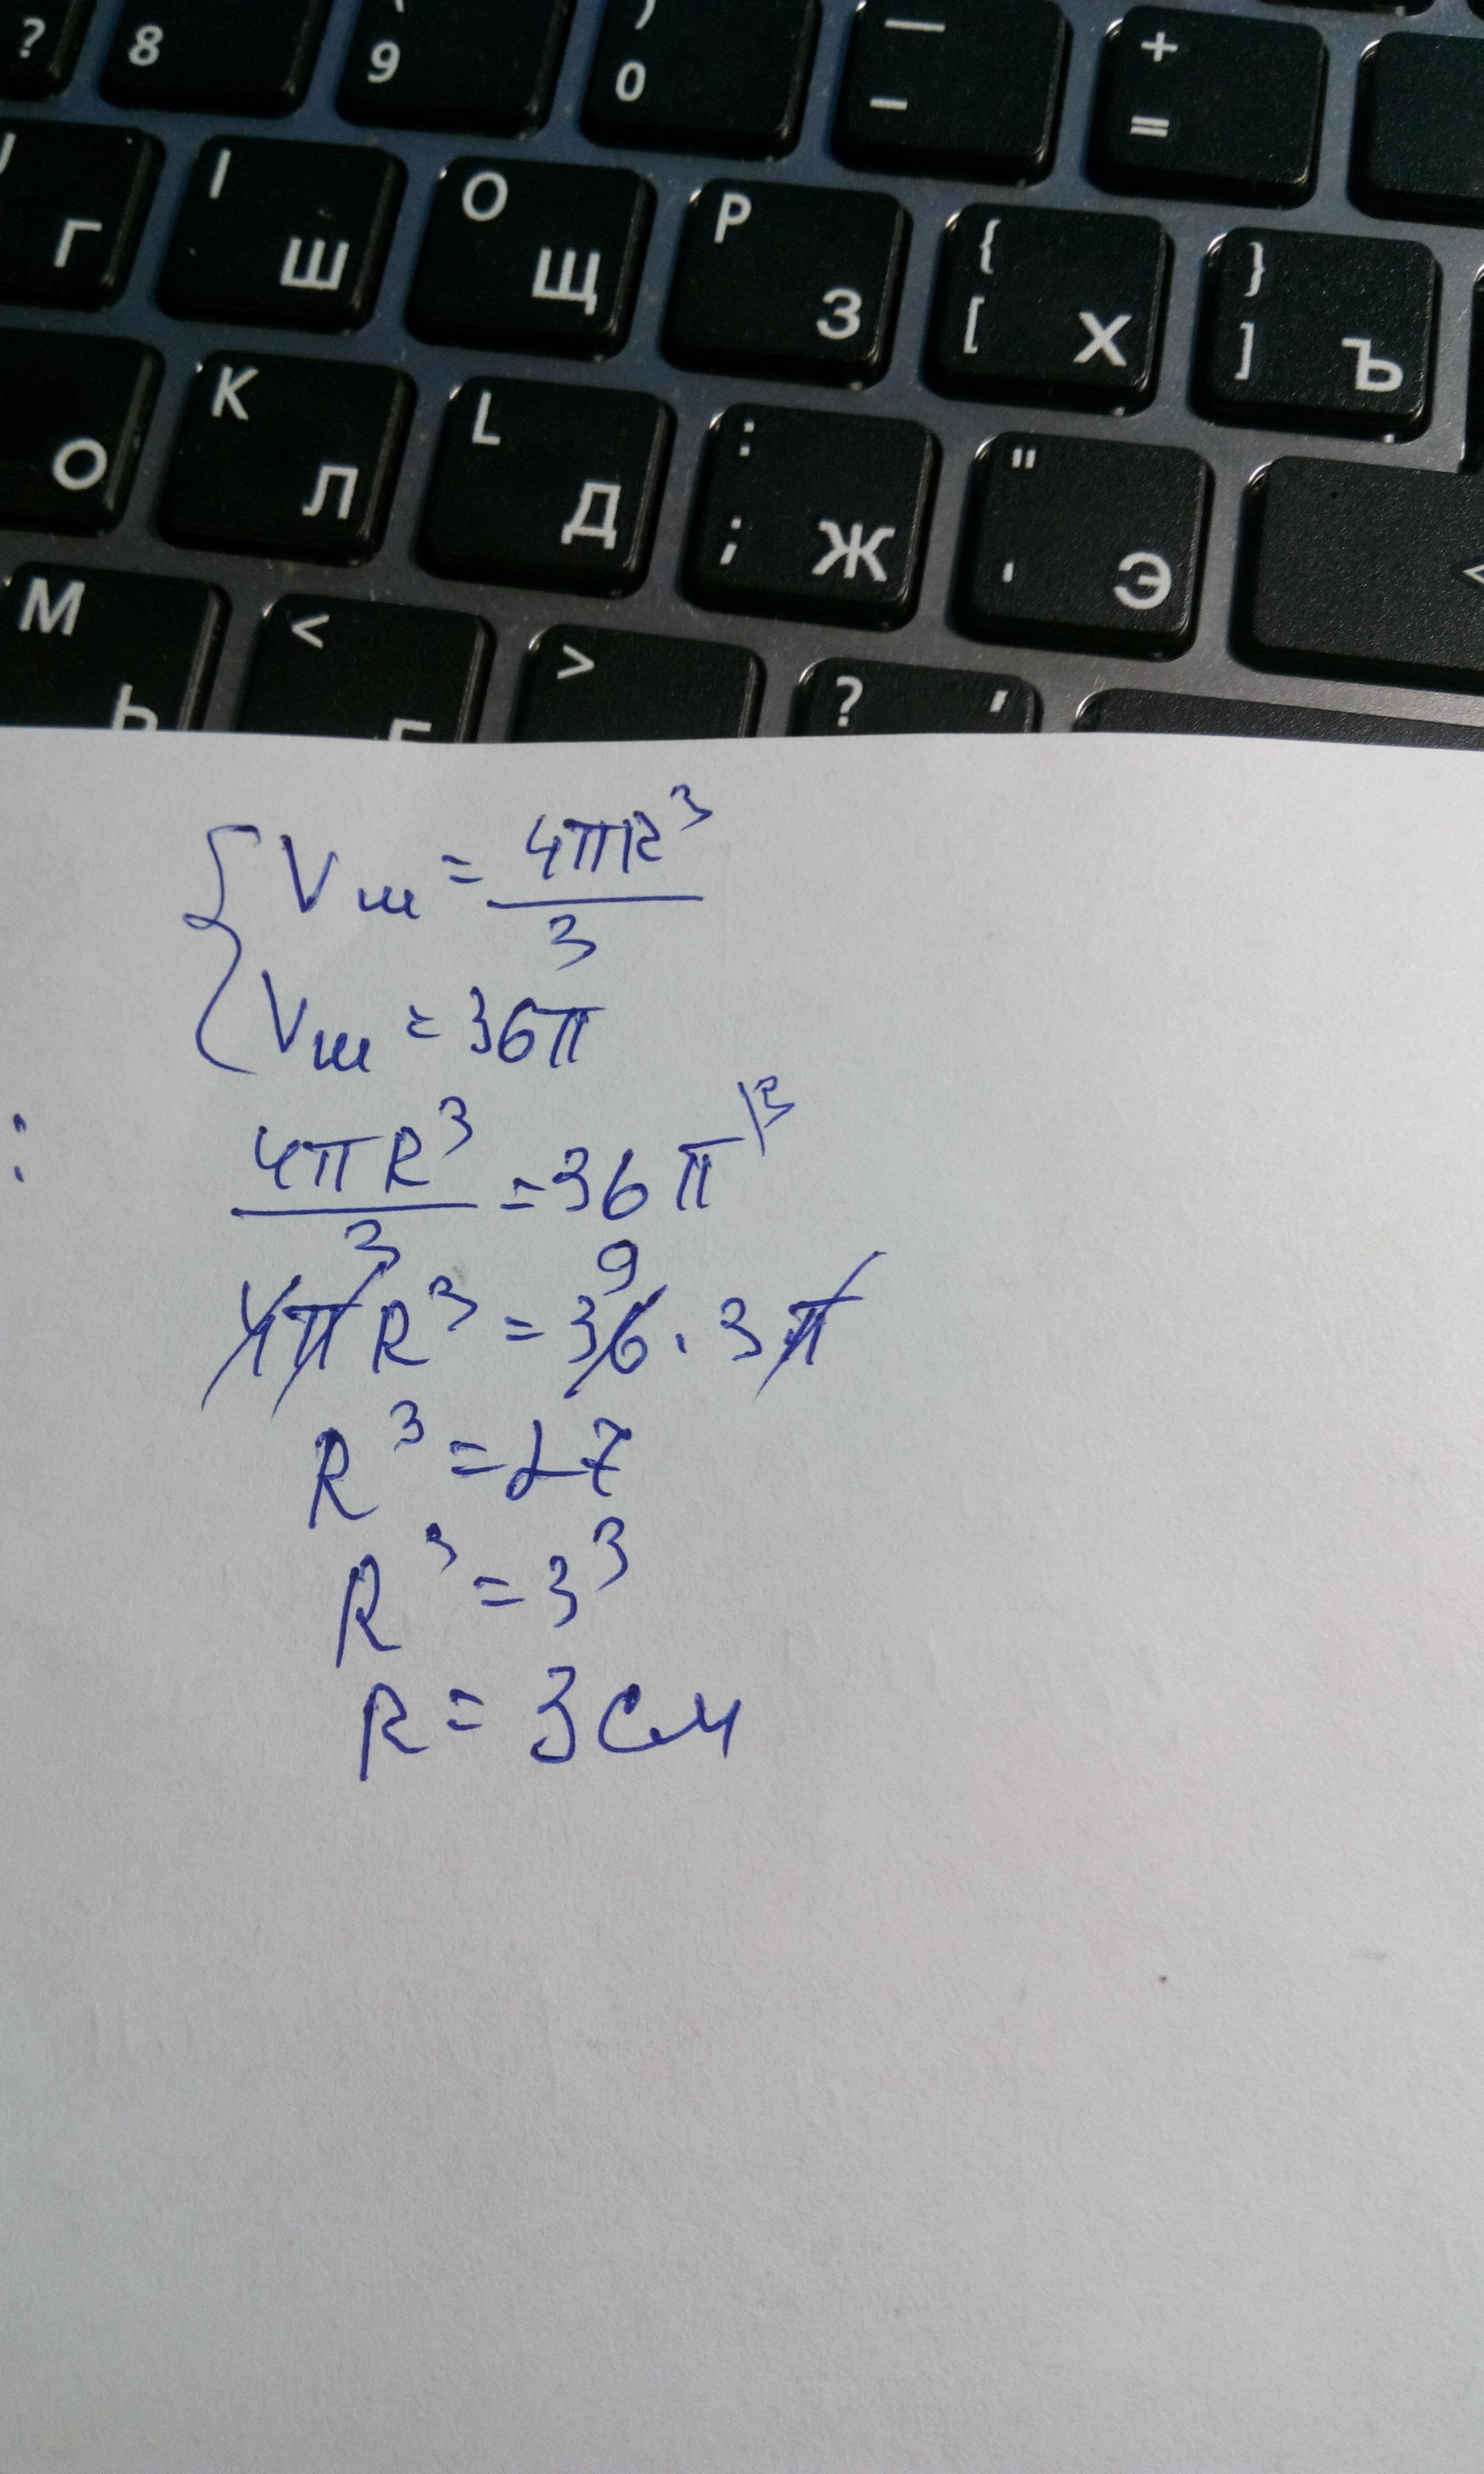 ? 8 ( 9 ) 0 — - + =
Г I Ш O Щ P З { [ Х } ] Ъ
О K Л L Д : ; Ж " ' Э <
M Ь < > ? '
Vш = 4πR³/3
Vш = 36π
: 4πR³/3 = 36π |3
4πR³ = 36 9 · 3π
R³ = 27
R³ = 3³
R = 3см